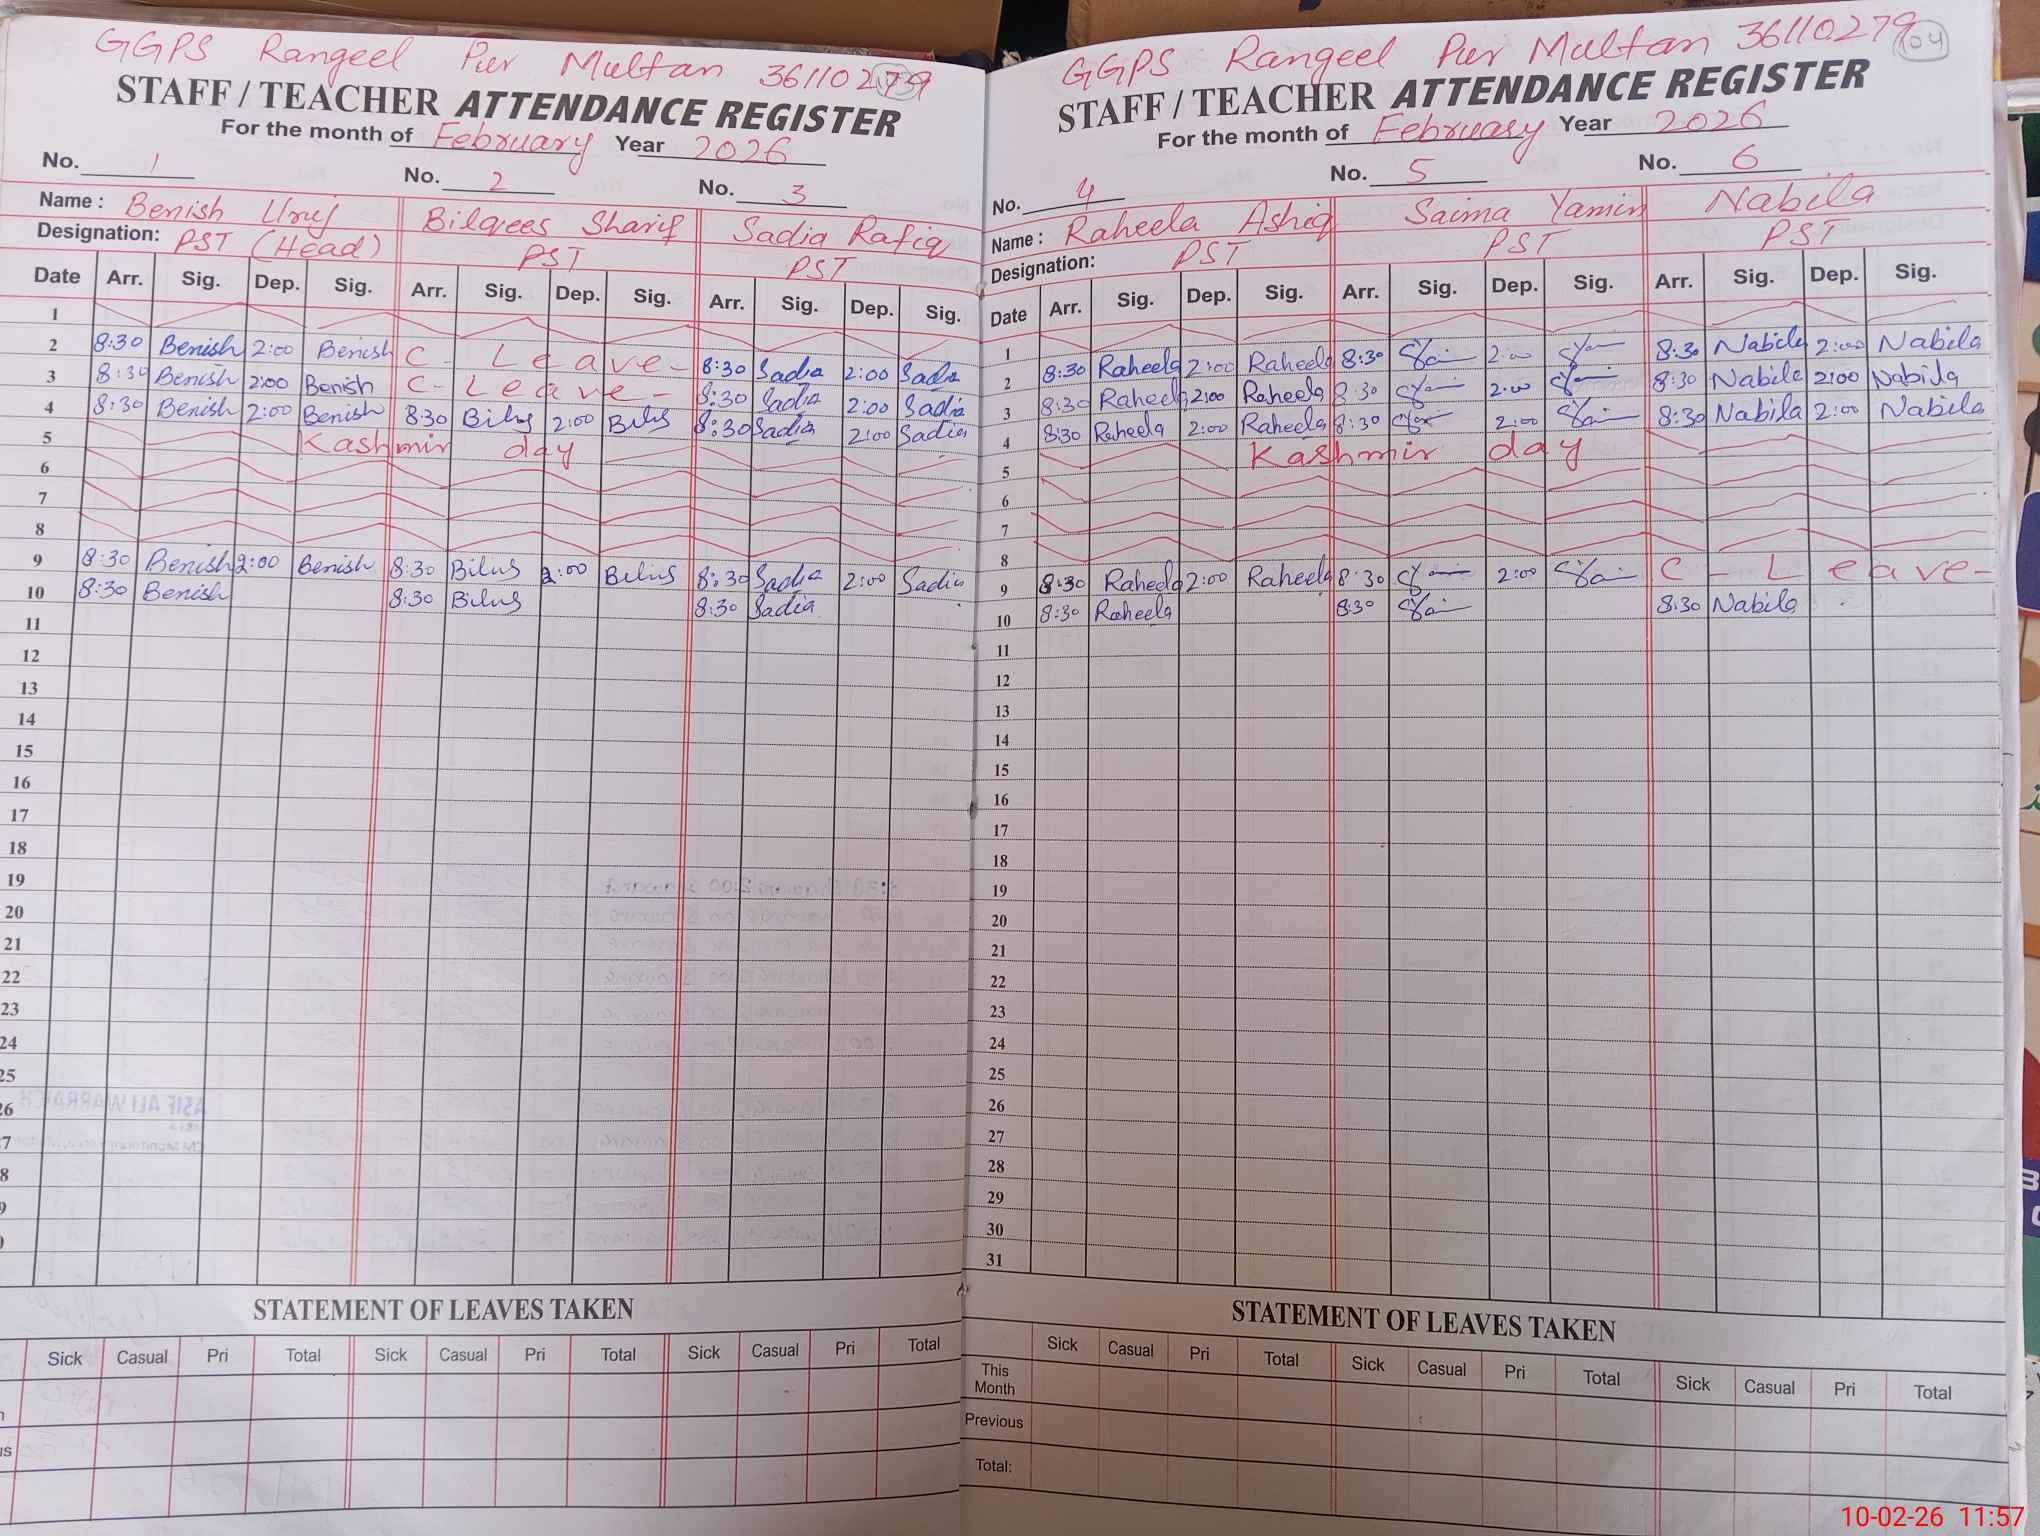 GGPS Rangeel Pur Multan 36110279
STAFF / TEACHER ATTENDANCE REGISTER
For the month of February Year 2026
No. 1 No. 2 No. 3
Name : Benish Uruj Bilqees Sharif Sadia Rafiq
Designation: PST (Head) PST PST
Date Arr. Sig. Dep. Sig. Arr. Sig. Dep. Sig. Arr. Sig. Dep. Sig.
1
2 8:30 Benish 2:00 Benish C - Leave - 8:30 Sadia 2:00 Sadia
3 8:30 Benish 2:00 Benish C - Leave - 8:30 Sadia 2:00 Sadia
4 8:30 Benish 2:00 Benish 8:30 Bilqs 2:00 Bilqs 8:30 Sadia 2:00 Sadia
5 Kashmir day
6
7
8
9 8:30 Benish 2:00 Benish 8:30 Bilqs 2:00 Bilqs 8:30 Sadia 2:00 Sadia
10 8:30 Benish 8:30 Bilqs 8:30 Sadia
11
12
13
14
15
16
17
18
19
20
21
22
23
24
25
26
STATEMENT OF LEAVES TAKEN
Sick Casual Pri Total Sick Casual Pri Total Sick Casual Pri Total
GGPS Rangeel Pur Multan 36110279 104
STAFF / TEACHER ATTENDANCE REGISTER
For the month of February Year 2026
No. 4 No. 5 No. 6
Name : Raheela Ashiq Saima Yamin Nabila
Designation: PST PST PST
Date Arr. Sig. Dep. Sig. Arr. Sig. Dep. Sig. Arr. Sig. Dep. Sig.
1
2 8:30 Raheela 2:00 Raheela 8:30 2:00 8:30 Nabila 2:00 Nabila
3 8:30 Raheela 2:00 Raheela 8:30 2:00 8:30 Nabila 2:00 Nabila
4 8:30 Raheela 2:00 Raheela 8:30 2:00 8:30 Nabila 2:00 Nabila
5 Kashmir day
6
7
8
9 8:30 Raheela 2:00 Raheela 8:30 2:00 C - Leave -
10 8:30 Raheela 8:30 8:30 Nabila
11
12
13
14
15
16
17
18
19
20
21
22
23
24
25
26
27
28
29
30
31
STATEMENT OF LEAVES TAKEN
Sick Casual Pri Total Sick Casual Pri Total Sick Casual Pri Total
This Month
Previous
Total:
10-02-26 11:57